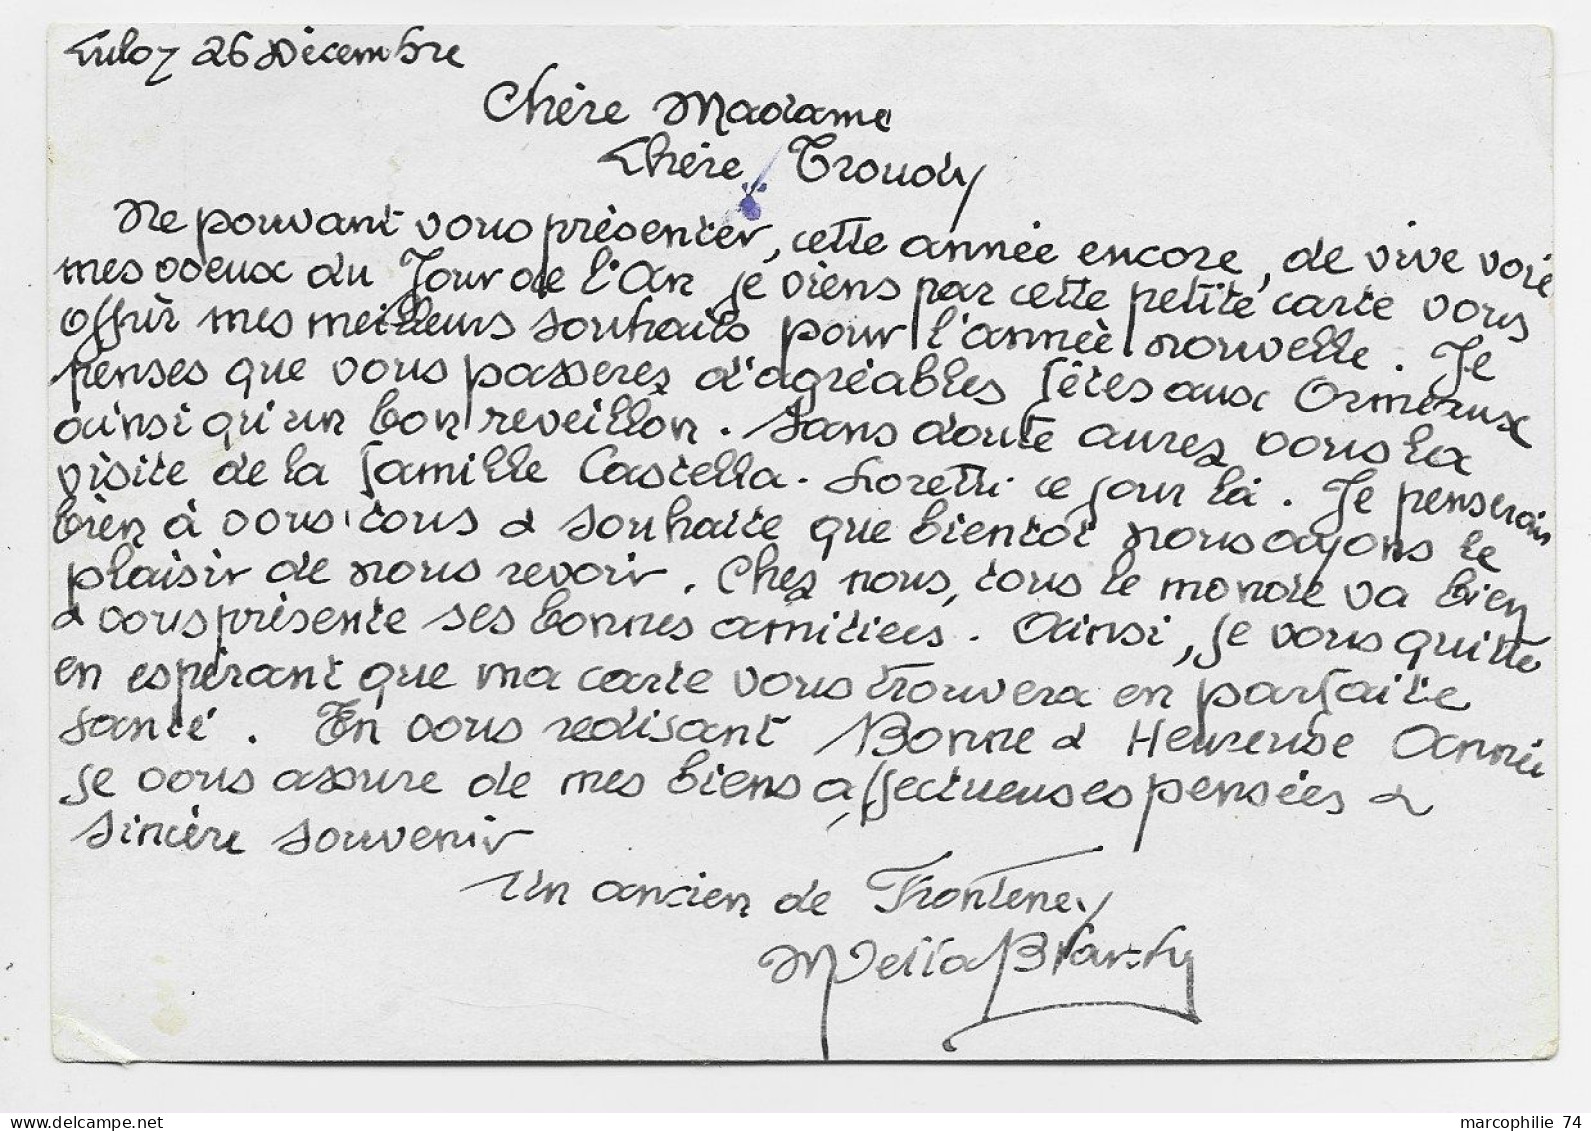 Culoz 26 Décembre
Chère Madame
Chère Troudy
Ne pouvant vous présenter, cette année encore, de vive voie
mes voeux du Jour de l'An je viens par cette petite carte vous
offrir mes meilleurs souhaits pour l'année nouvelle. Je
penses que vous passerez d'agréables fêtes aux Ormeaux
ainsi qu'un bon reveillon. Sans doute aurez vous la
visite de la famille Castella. Loretti ce jour là. Je penserais
bien à vous tous & souhaite que bientot nous ayons le
plaisir de nous revoir. Chez nous, tous le monde va bien
& vous présente ses bonnes amitiees. Ainsi, je vous quitte
en espérant que ma carte vous trouvera en parfaite
santé. En vous redisant Bonne & Heureuse Année
je vous assure de mes biens affectueuses pensées &
sincère souvenir
Un ancien de Frontenex
marcophilie 74